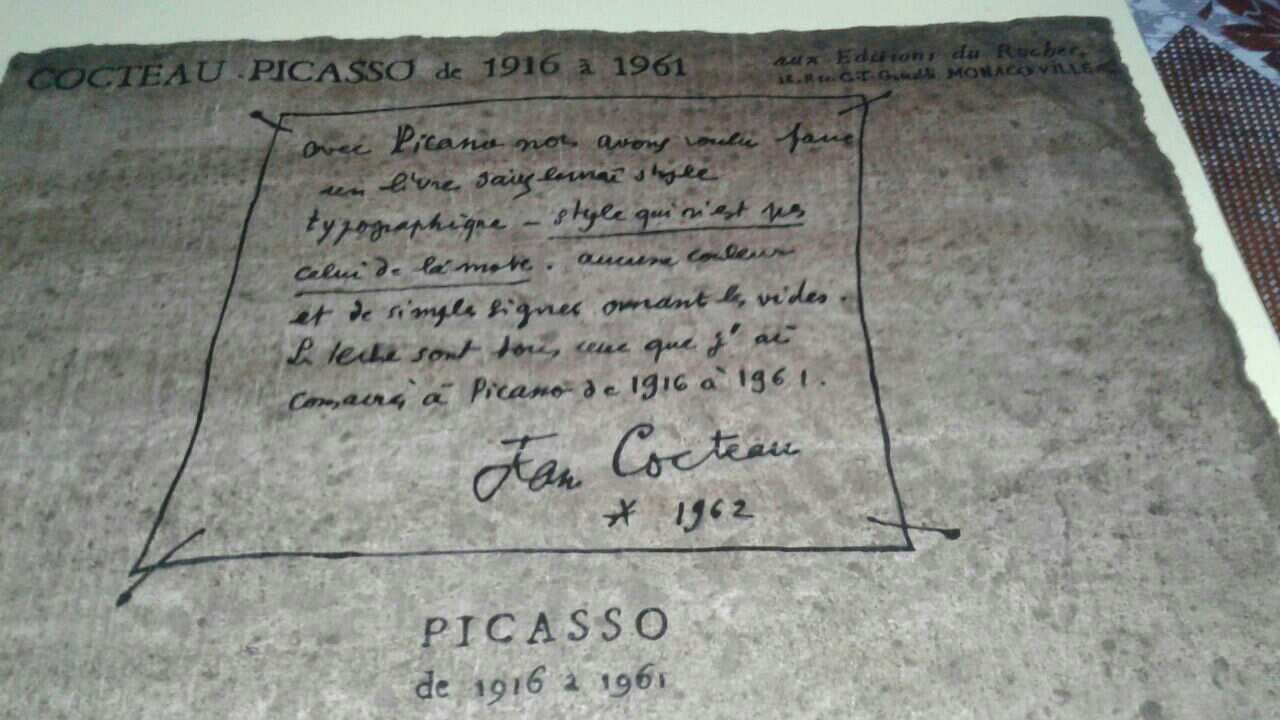 COCTEAU . PICASSO de 1916 à 1961
aux Editions du Rocher.
MONACO VILLE
avec Picasso nous avons voulu faire
un livre dans le vrai style
typographique – style qui n'est pas
celui de la mode. aucune couleur
et de simples signes ornant les vides.
Le texte sont tous ceux que j'ai
consacrés à Picasso de 1916 à 1961.
Jean Cocteau
* 1962
PICASSO
de 1916 à 1961